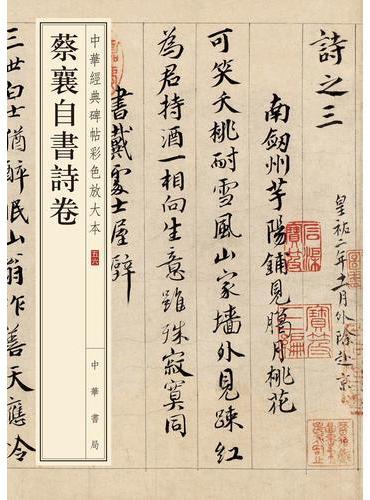 詩之三
皇祐二年十一月外除赴京
南劔州芋陽鋪見臘月桃花
可笑夭桃耐雪風山家墻外見疎紅
為君持酒一相向生意雖殊寂寞同
書戴處士屋壁
中華經典碑帖彩色放大本
蔡襄自書詩卷
中華書局
三世白士猶醉眠山翁作善天應怜